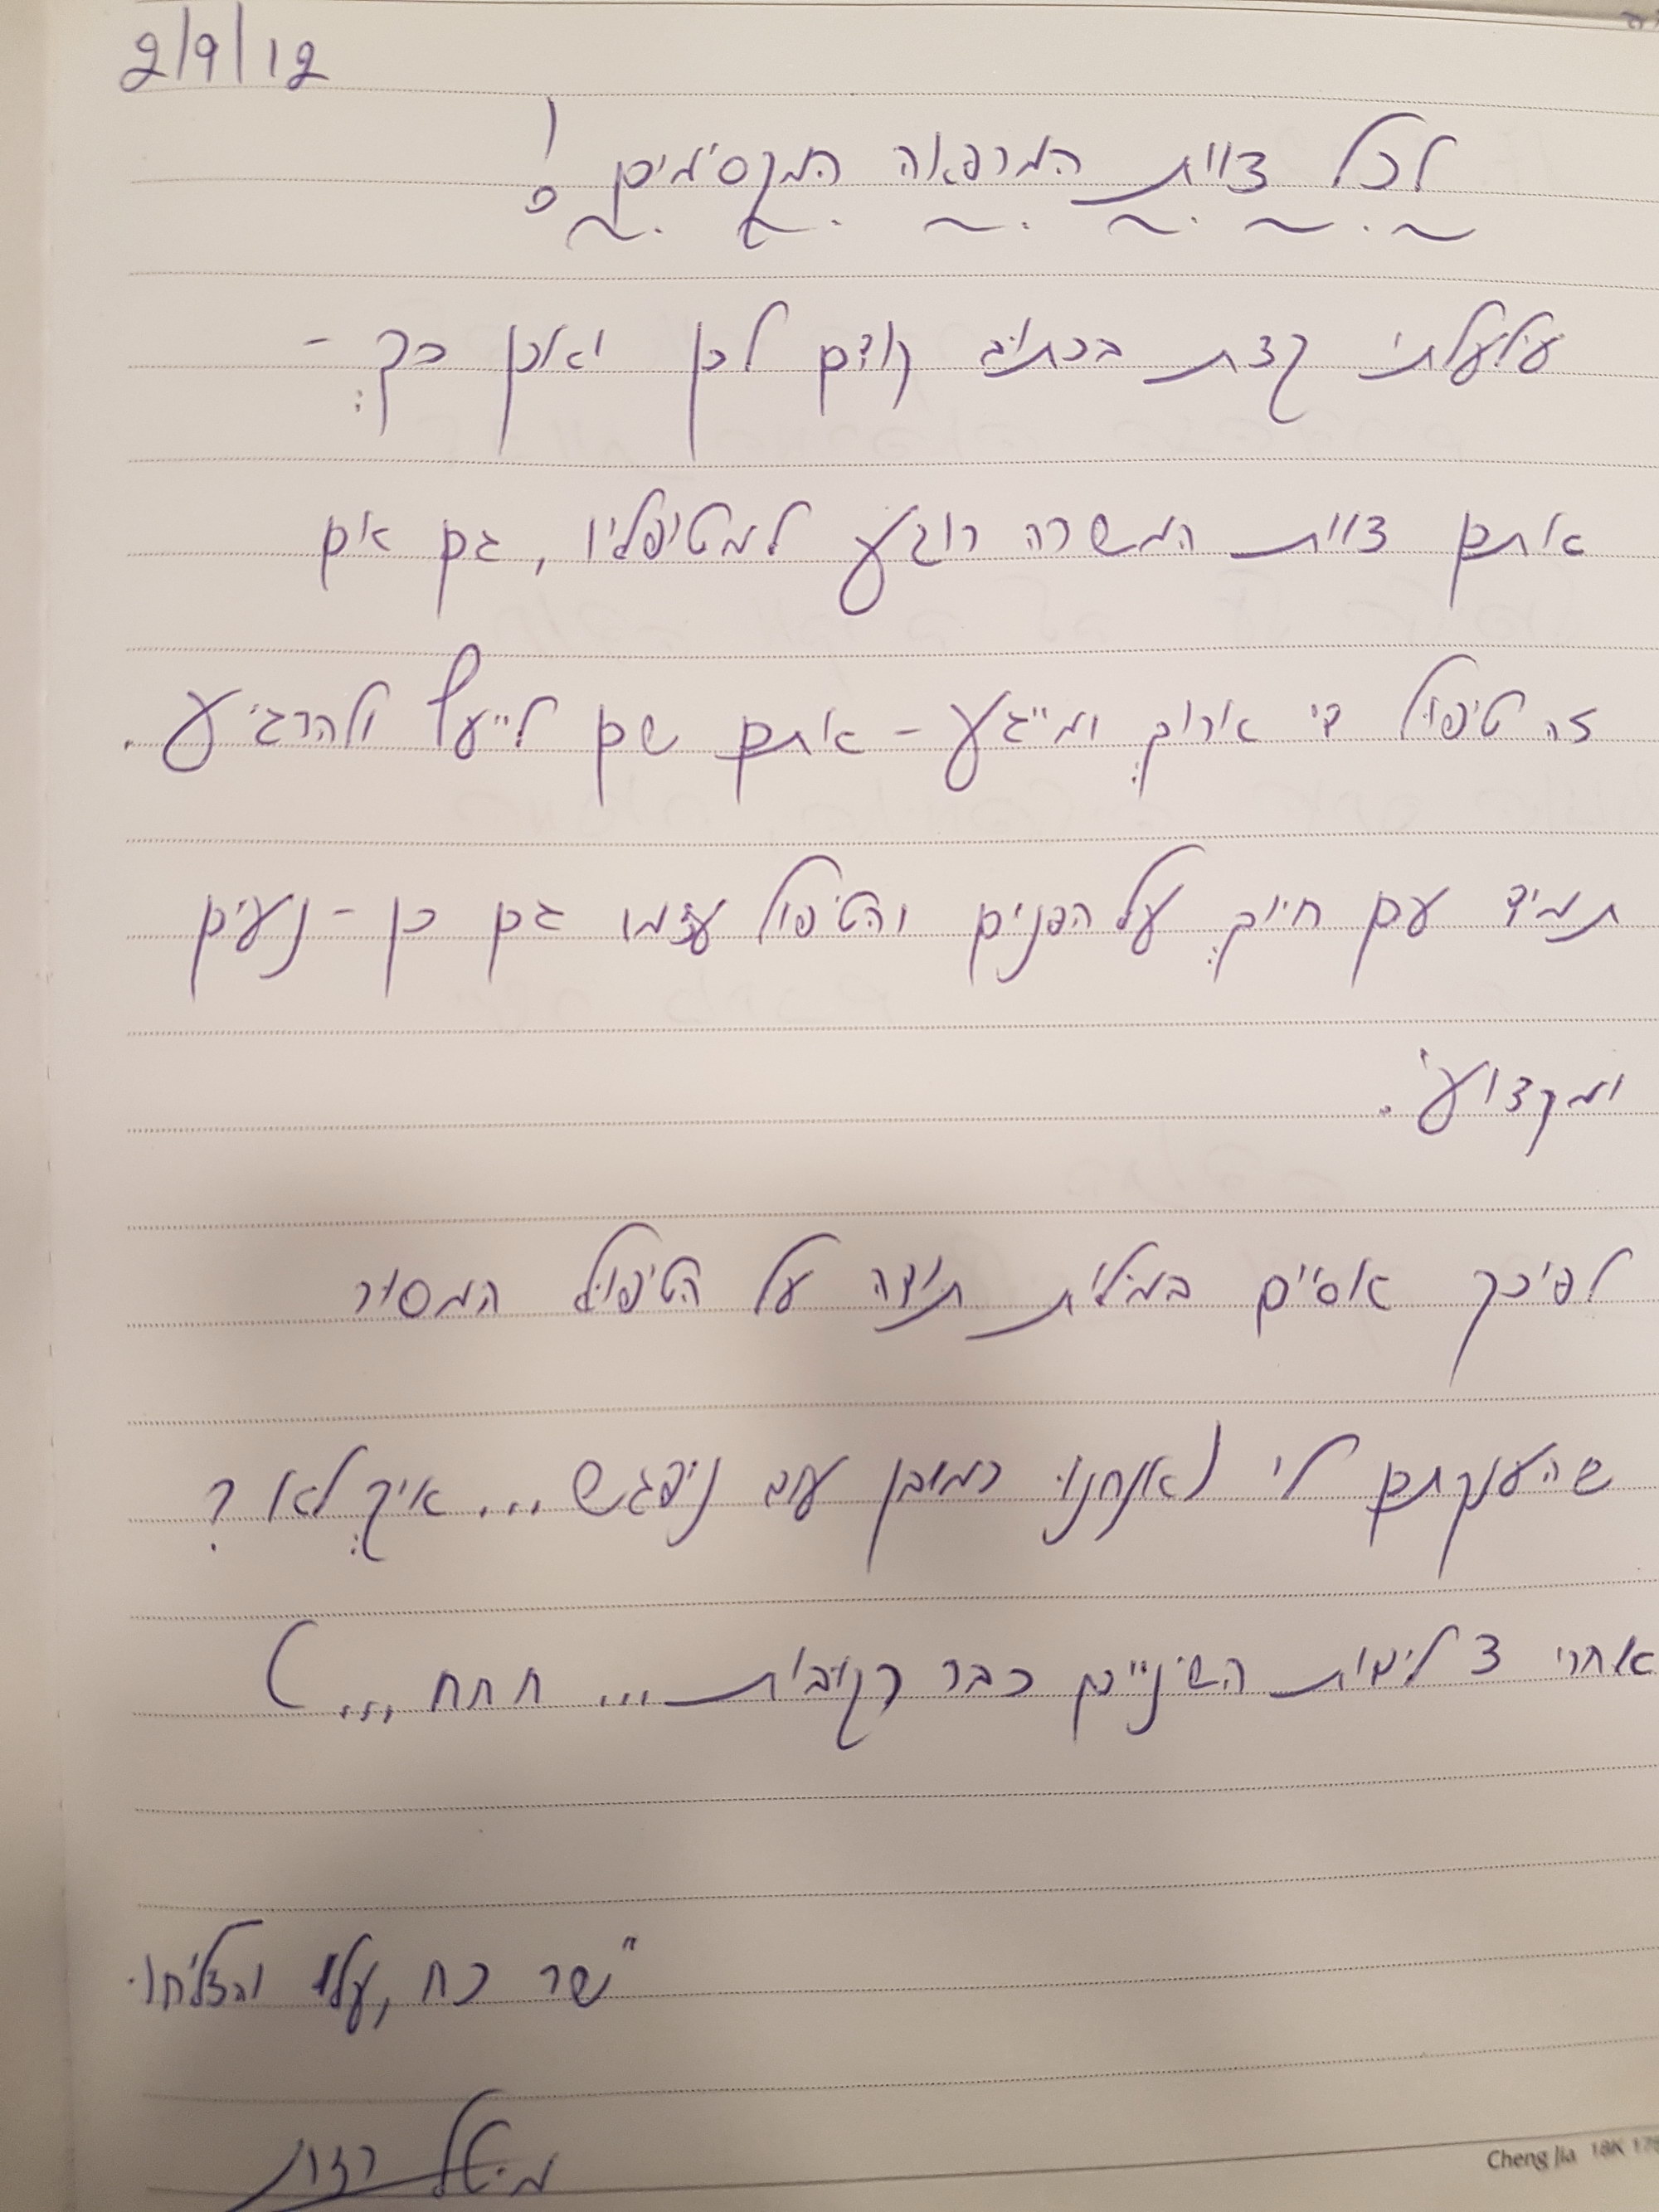 2/9/12
לכל צוות המרפאה המקסימים!
עלעלתי קצת בכתוב קודם לכן ואכן כך -
אתם צוות המשרה רוגע למטופליו, גם אם
זה טיפול די ארוך ומייגע - אתם שם לייעל ולהרגיע.
תמיד עם חיוך על הפנים והטיפול עצמו גם כן - נעים
ומקצועי.
לפיכך אסיים במילות תודה על הטיפול המסור
שהענקתם לי (אנחנו כמובן עוד ניפגש... איך לא?
אחרי 3 לידות השיניים כבר רקובות... חחח...)
יישר כח, עלו והצליחו.
Cheng Jia 18K